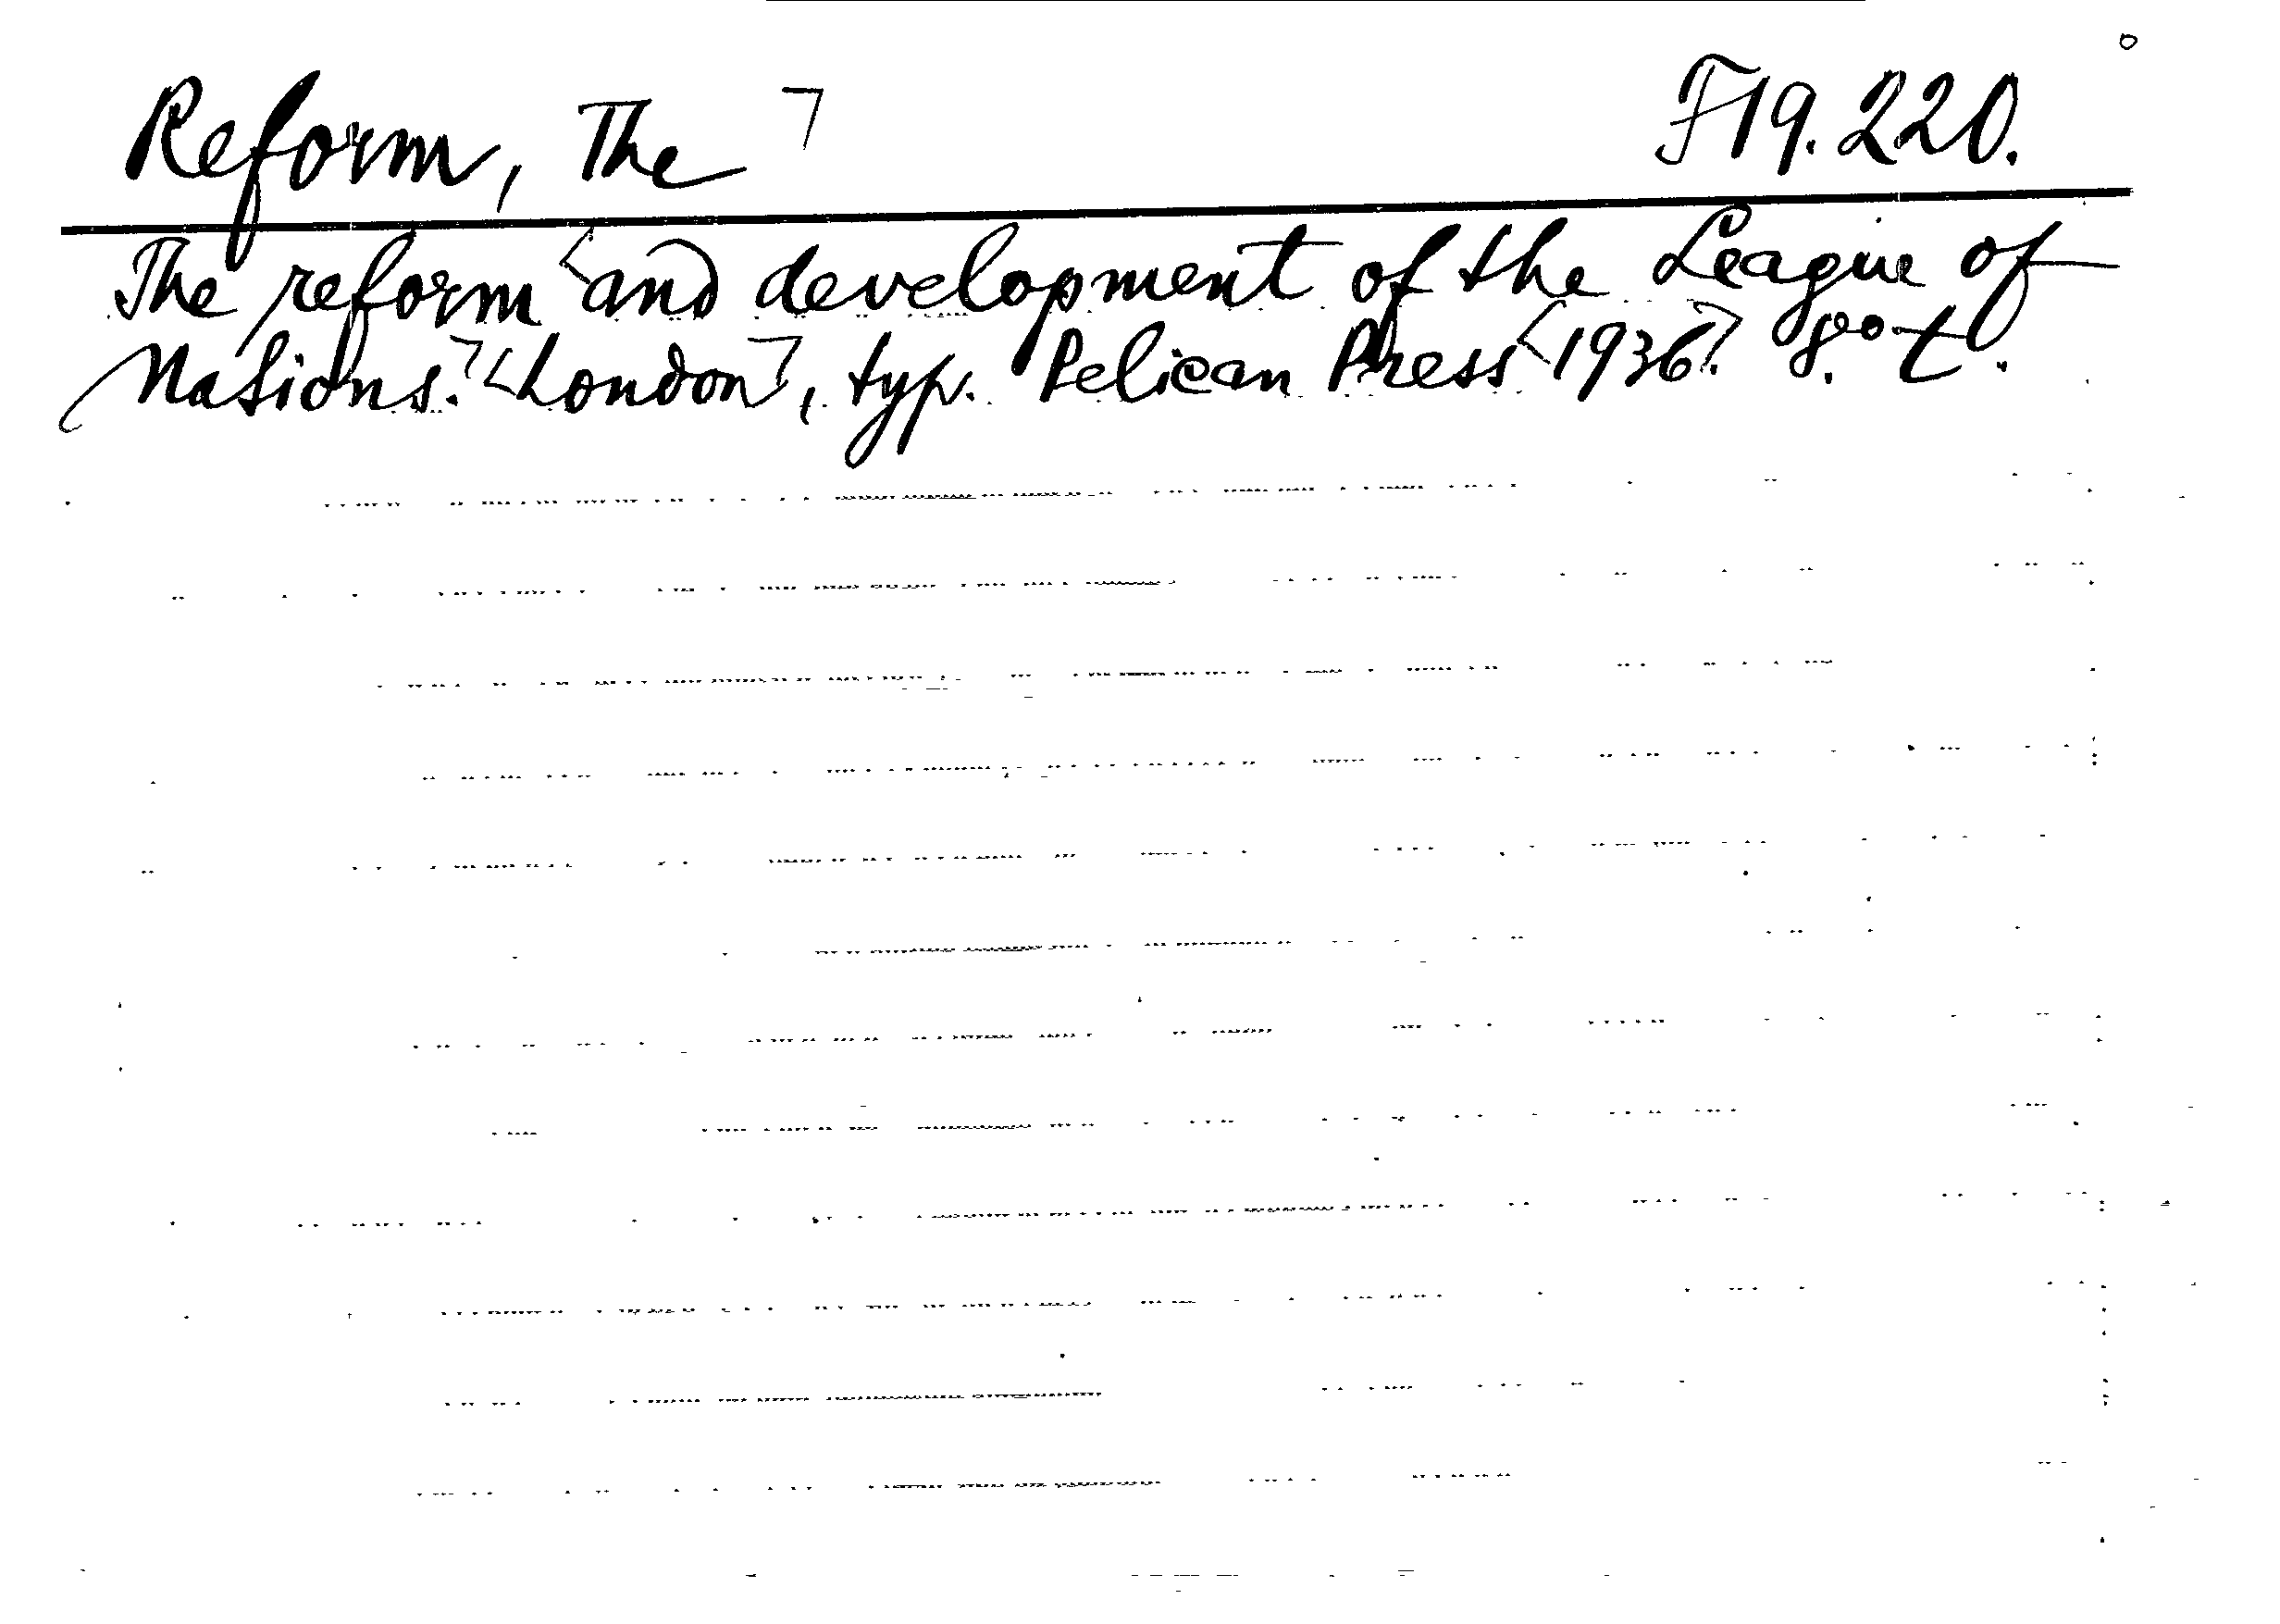 Reform, The ⌝ F19.220.
The reform <and development of the League of
Nations.⌝ <London⌝, typ. Pelican Press <1936⌝. 8.° t.